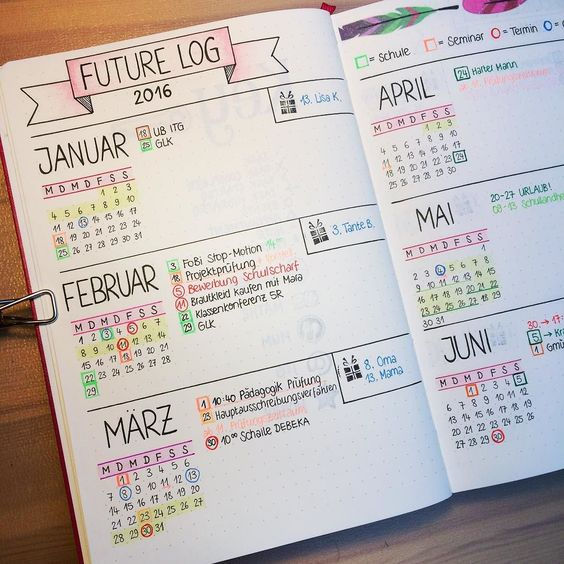 FUTURE LOG
2016
JANUAR
18 UB ITG
25 GLK
13. Lisa K.
M D M D F S S
1 2 3
4 5 6 7 8 9 10
11 12 13 14 15 16 17
18 19 20 21 22 23 24
25 26 27 28 29 30 31
FEBRUAR
3 FoBi Stop-Motion 14
18 Projektprüfung
5 Bewerbung Schulscharf
11 Brautkleid kaufen mit Mara
22 Klassenkonferenz 5R
29 GLK
3. Tante B.
M D M D F S S
1 2 3 4 5 6 7
8 9 10 11 12 13 14
15 16 17 18 19 20 21
22 23 24 25 26 27 28
29
MÄRZ
1 10:40 Pädagogik Prüfung
23 Hauptausschreibungsverfahren
ab 11. Prüfungszeitraum
30 10⁰⁰ Schaile DEBEKA
8. Oma
13. Mama
M D M D F S S
1 2 3 4 5 6
7 8 9 10 11 12 13
14 15 16 17 18 19 20
21 22 23 24 25 26 27
28 29 30 31
= Schule = Seminar = Termin =
APRIL
24 Harter Mann
M D M D F S S
1 2 3
4 5 6 7 8 9 10
11 12 13 14 15 16 17
18 19 20 21 22 23 24
25 26 27 28 29 30
MAI
20-27 URLAUB!
09-13 Schullandhe
M D M D F S S
1
2 3 4 5 6 7 8
9 10 11 12 13 14 15
16 17 18 19 20 21 22
23 24 25 26 27 28 29
30 31
JUNI
30 → 17
5
1 Gmü
M D M D F S S
1 2 3 4 5
6 7 8 9 10 11 12
13 14 15 16 17 18 19
20 21 22 23 24 25 26
27 28 29 30